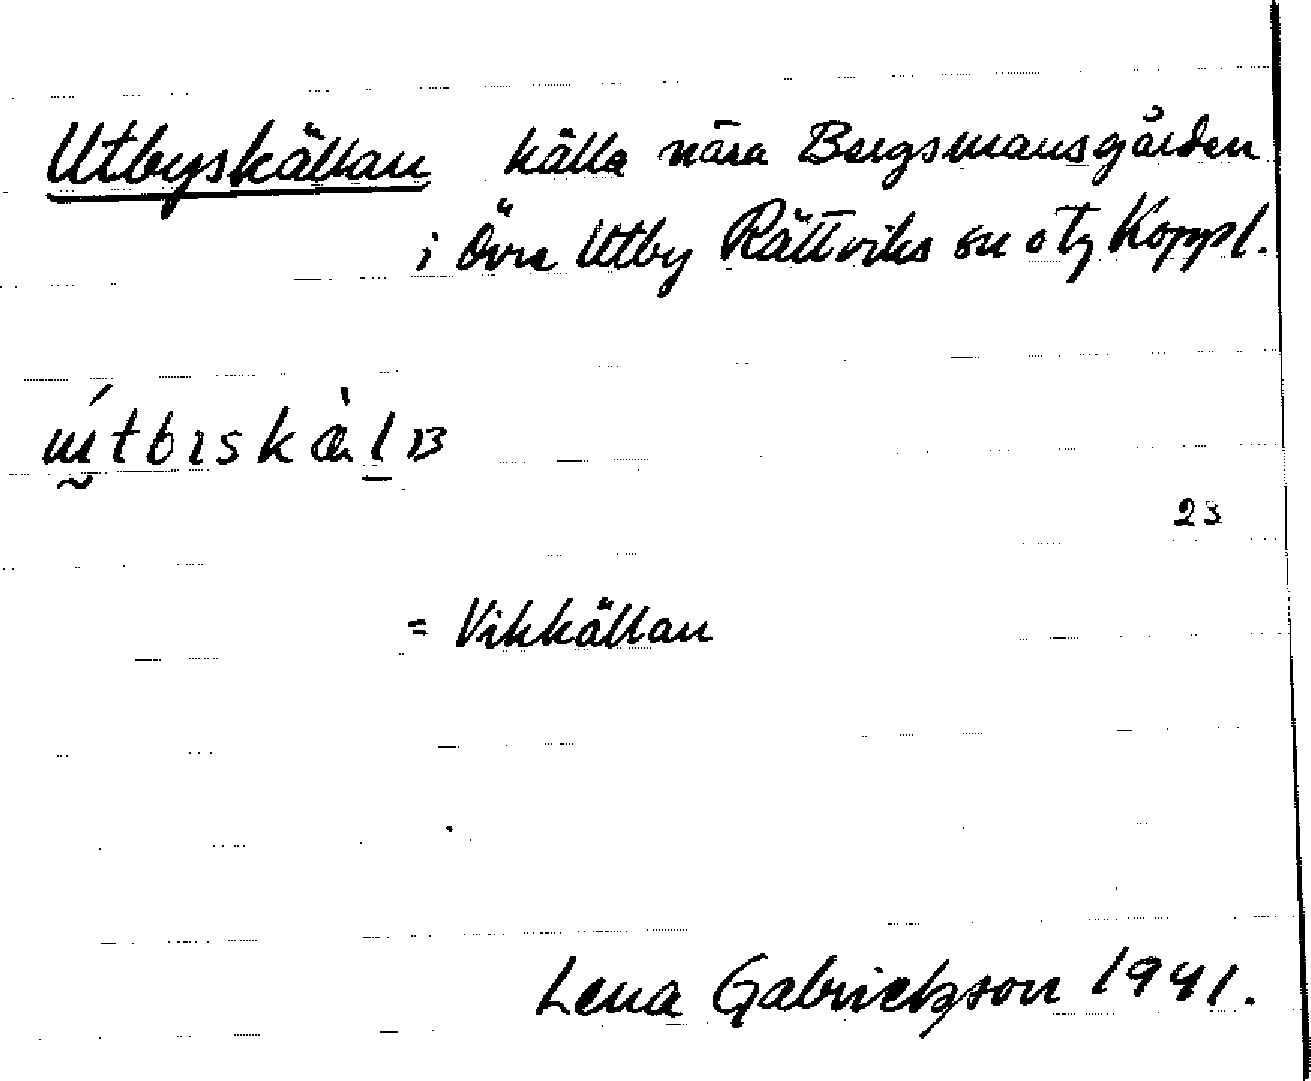 Utbyskällan källa nära Bergsmansgården
i Övre Utby Rättviks sn o tg Koppl.
23
= Vikkällan
Lena Gabrielsson 1941.